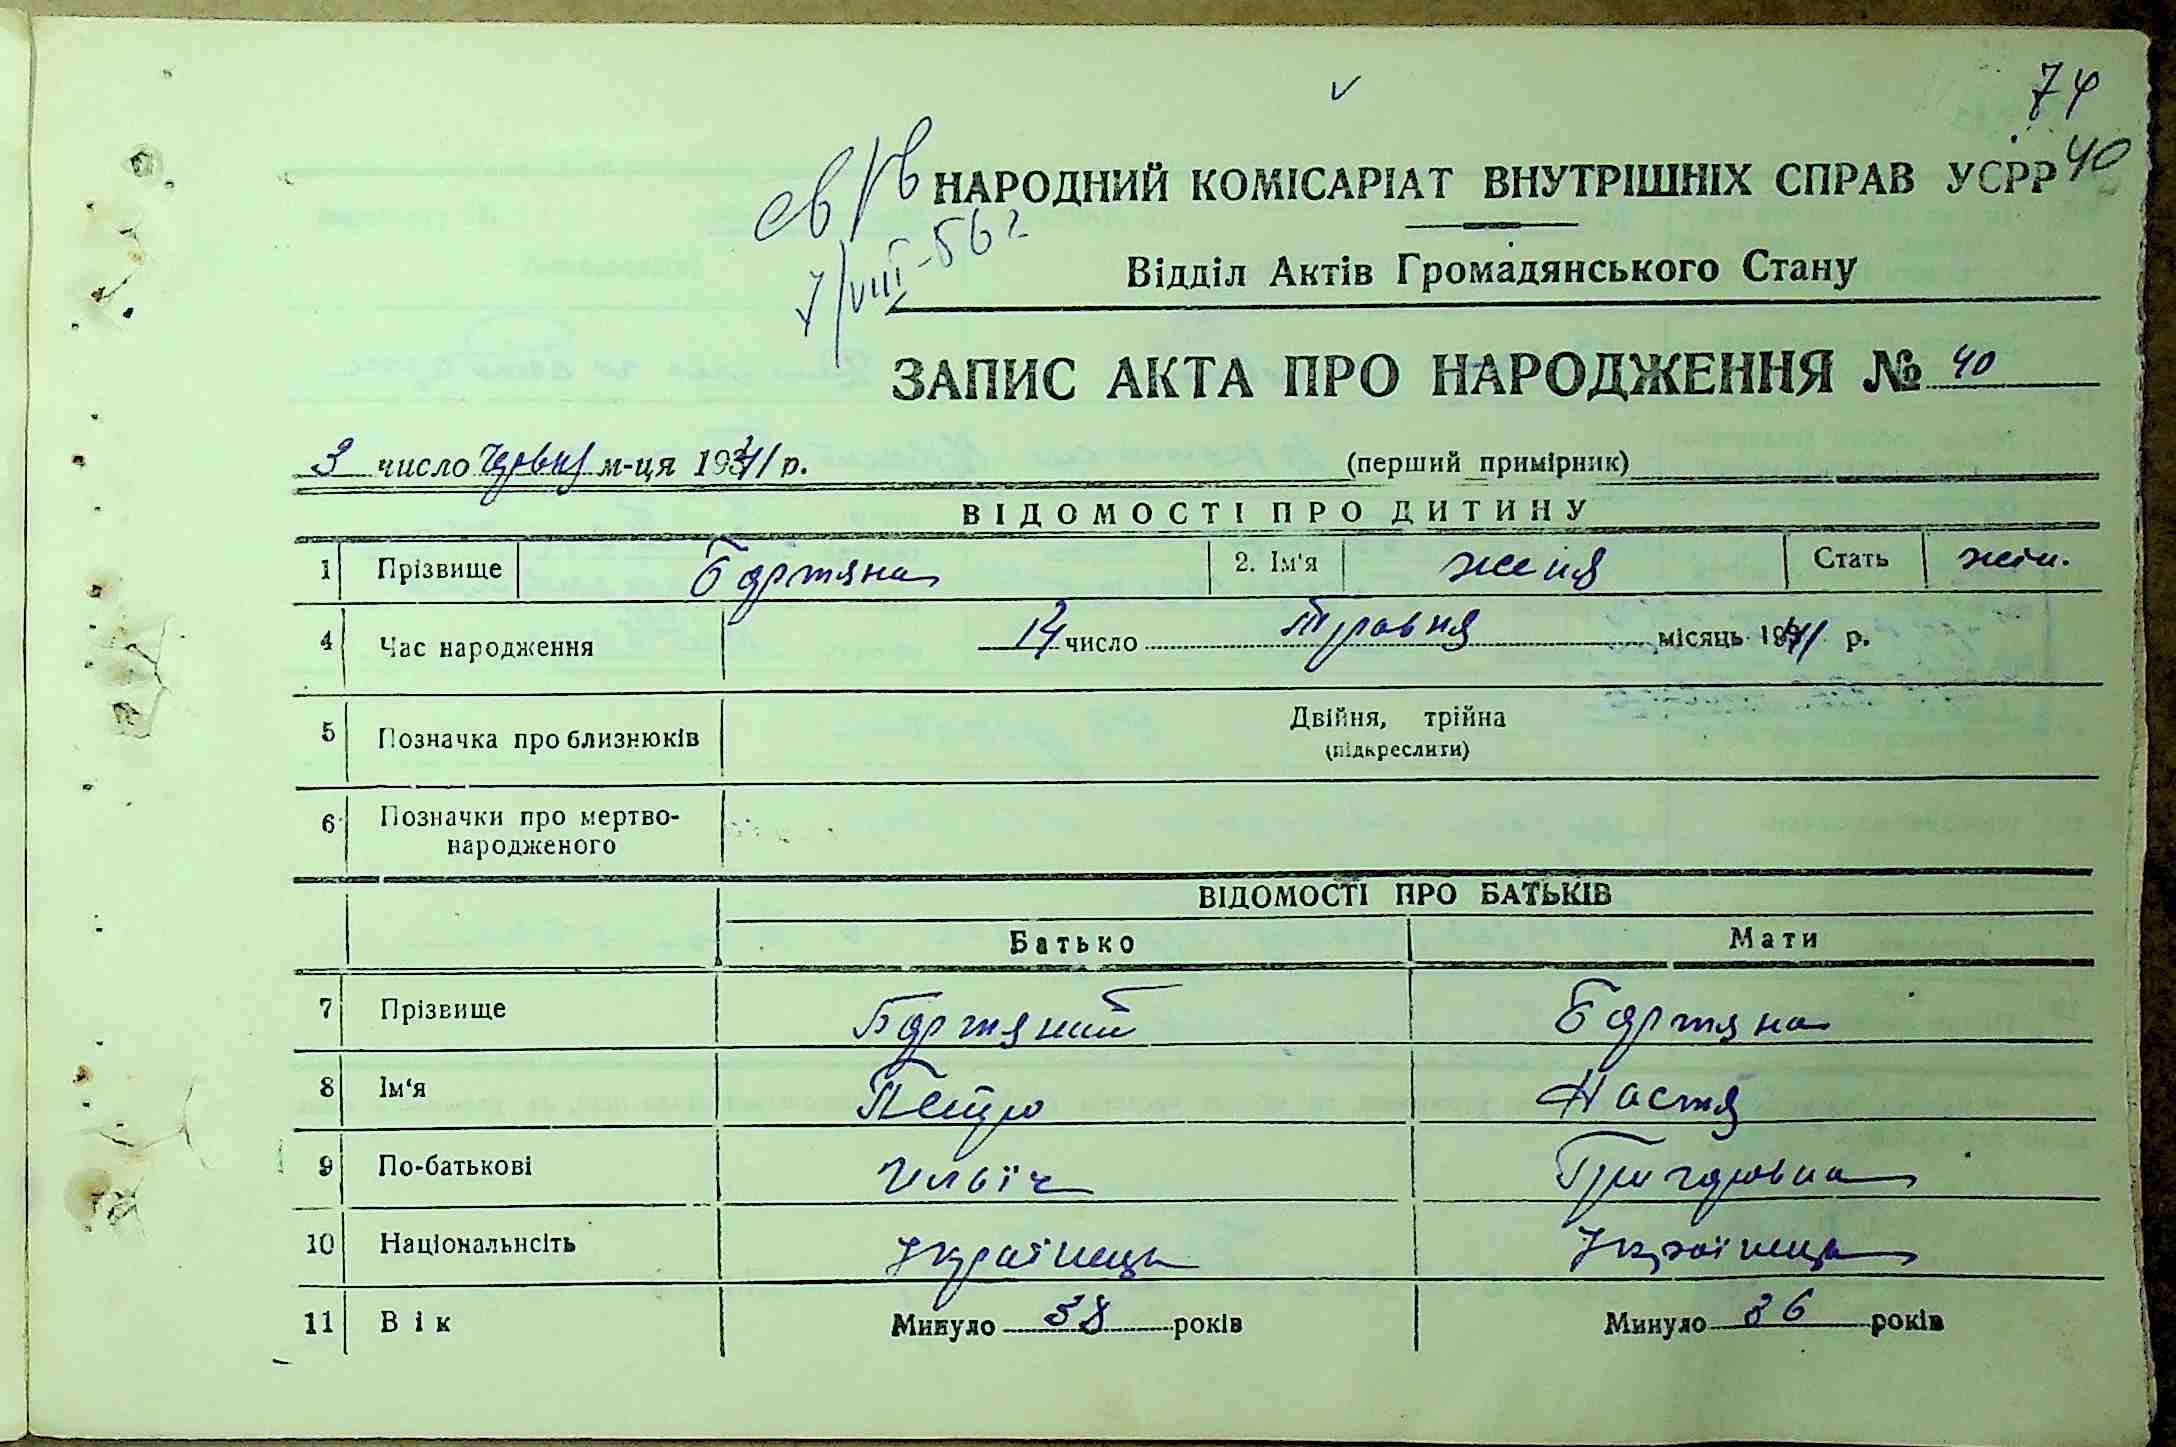 74
40
св/рв
7/VIII-56 г
НАРОДНИЙ КОМІСАРІАТ ВНУТРІШНІХ СПРАВ УСРР
Відділ Актів Громадянського Стану
ЗАПИС АКТА ПРО НАРОДЖЕННЯ № 40
3 число Червня м-ця 1941 р. (перший примірник)
ВІДОМОСТІ ПРО ДИТИНУ
1 Прізвище Бартяна 2. Ім'я Женя Стать жін.
4 Час народження 14 число Травня місяць 1941 р.
5 Позначка про близнюків Двійня, трійна
(підкреслити)
6 Позначки про мертво-
народженого
ВІДОМОСТІ ПРО БАТЬКІВ
Батько Мати
7 Прізвище Бартяний Бартяна
8 Ім'я Петро Настя
9 По-батькові Ильїч Григоровна
10 Національнсіть Українець Українца
11 Вік Минуло 38 років Минуло 36 років